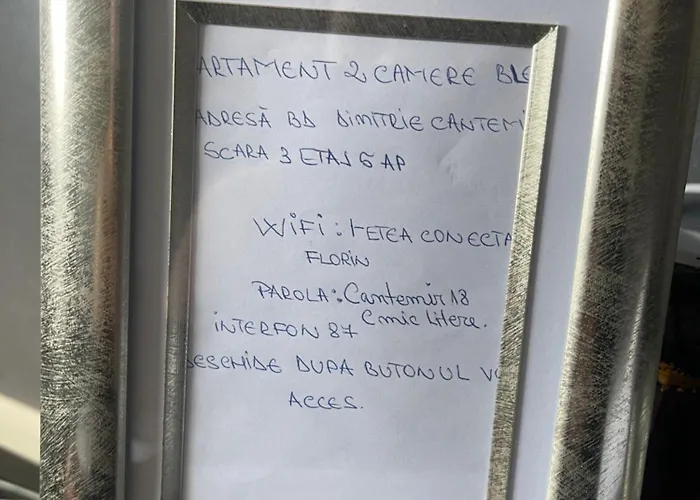 ARTAMENT 2 CAMERE BL
ADRESĂ BD DIMITRIE CANTEMI
SCARA 3 ETAJ 6 AP
WIFI: RETEA CONECTA
FLORIN
PAROLA: Cantemir 18
C mic litere.
INTERFON 87
DESCHIDE DUPA BUTONUL
ACCES.